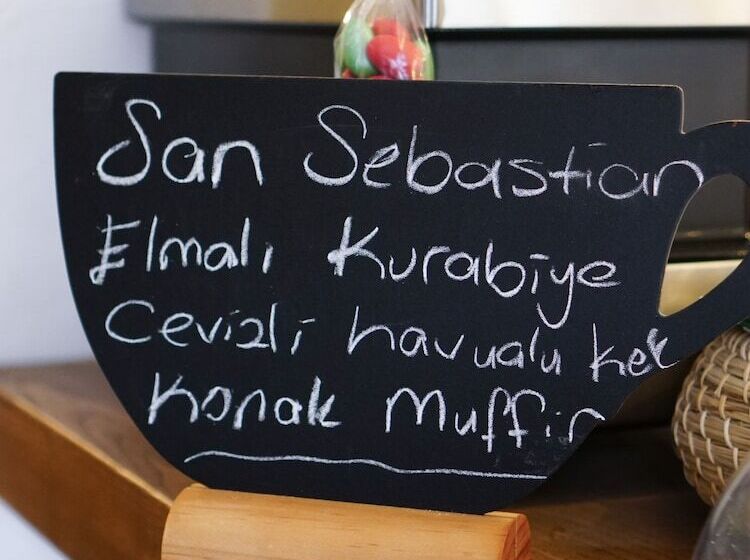 San Sebastian
Elmalı Kurabiye
Cevizli havuçlu kek
Konak Muffin